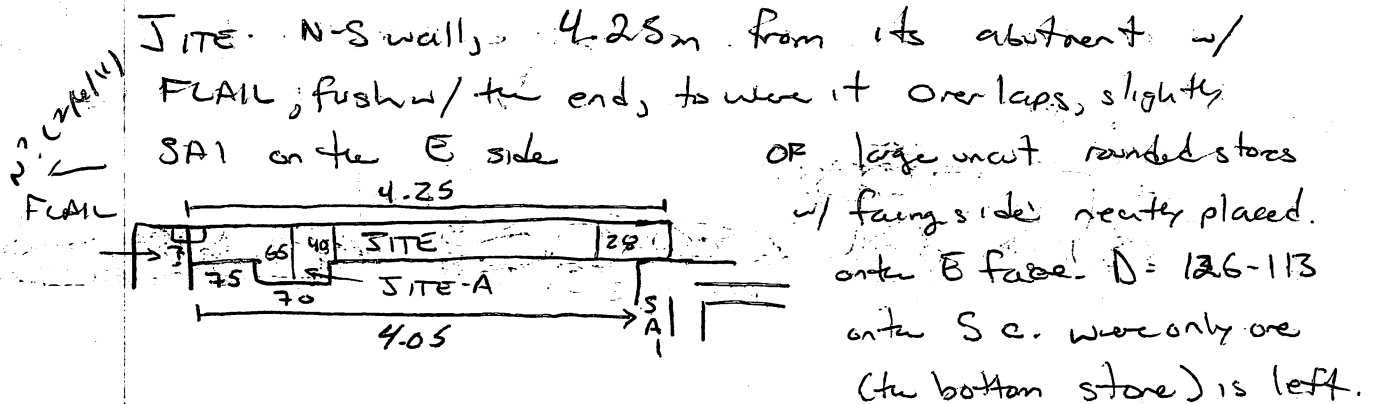 JITE. N-S wall, 4.25m from its abutment w/
FLAIL, flush w/ the end, to were it overlaps, slightly
SA1 on the E side
OF large uncut rounded stones
w/ facing side neatly placed.
on the E face. D = 126-113
on the S c. were only one
(the bottom stone) is left.
FLAIL
4.25
65
49
JITE
28
75
70
JITE-A
4.05
SA1